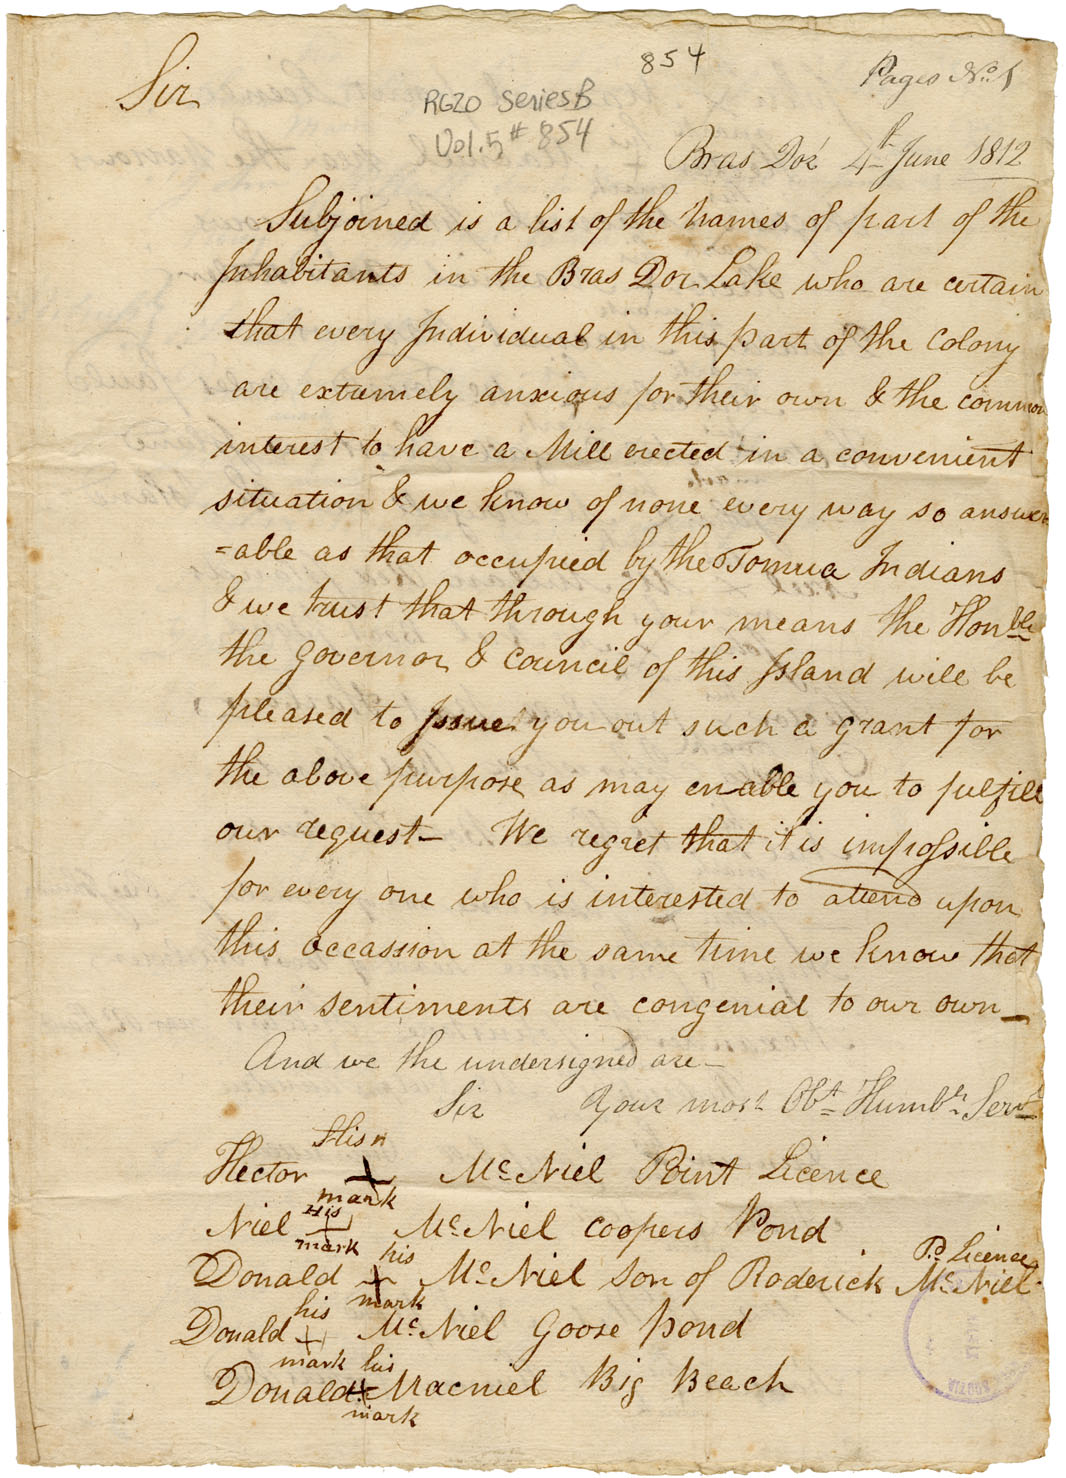 854
Pages No. 1
Sir
RG20 Series B
Vol. 5 # 854
Bras Dor 4th June 1812
Subjoined is a list of the names of part of the
Inhabitants in the Bras Dor Lake who are certain
that every Individual in this part of the Colony
are extremely anxious for their own & the common
interest to have a Mill erected in a convenient
situation & we know of none every way so answer
=able as that occupied by the Tomua Indians
& we trust that through your means the Honble
the Governor & Council of this Island will be
pleased to Issue you out such a grant for
the above purpose as may enable you to fulfill
our request – We regret that it is impossible
for every one who is interested to attend upon
this occassion at the same time we know that
their sentiments are congenial to our own –
And we the undersigned are –
Sir Your most Obt Humble Servt
His
Hector + McNiel Point Licence
mark
His
Niel + McNiel Coopers Pond
mark
his Pt Licence
Donald + McNiel Son of Roderick McNiel
mark
his
Donald + McNiel Goose pond
mark
his
Donald + Macniel Big Beach
mark